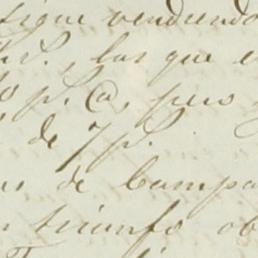 sigue vendiendo
las que e
p. @, pero
de 7 p.
de campa
triunfo ob